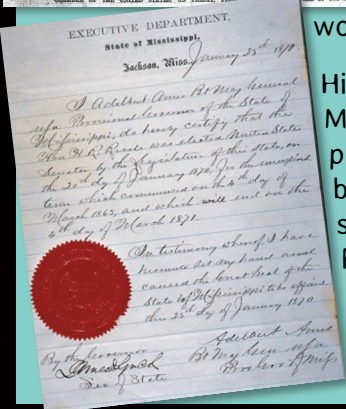 EXECUTIVE DEPARTMENT,
State of Mississippi,
Jackson, Miss. January 25th 1870
I Adelbert Ames Bt Maj General
USA Provisional Governor of the State of
Mississippi, do hereby certify that the
Hon H. R. Revels was elected United States
Senator by the Legislature of this State, on
the 20th day of January 1870, for the unexpired
term which commenced on the 4th day of
March 1865, and which will end on the
4th day of March 1871.
In testimony whereof I have
hereunto set my hand and
caused the Great Seal of the
State of Mississippi to be affixed
this 25th day of January 1870
Adelbert Ames
Bt Maj Gen USA
Prov Gov of Miss
By the Governor
Sec of State
wo
Hi
M
p
b
s